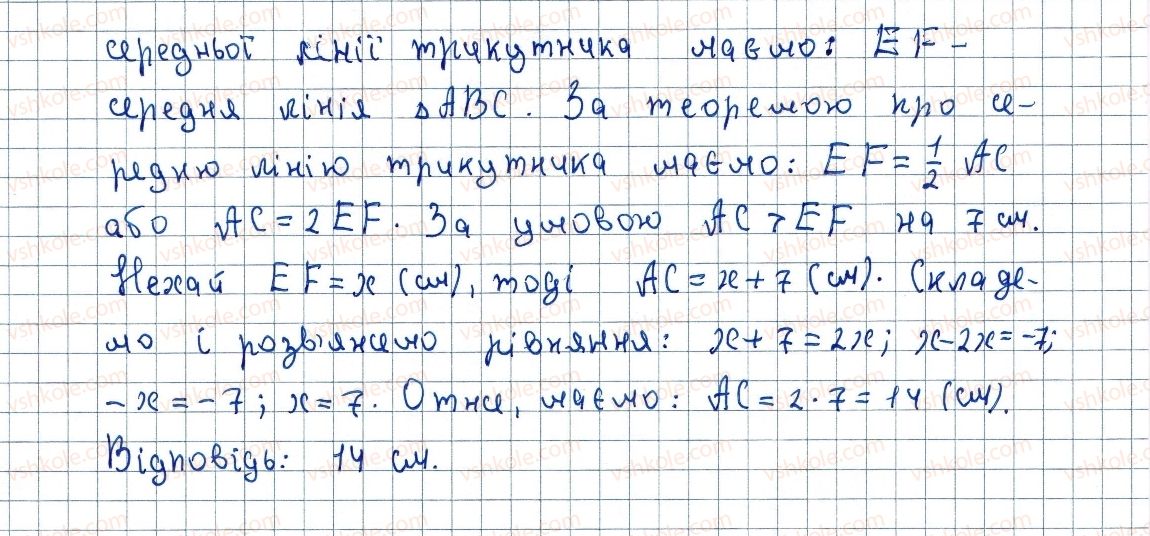 середньої лінії трикутника маємо: EF –
середня лінія △ABC. За теоремою про се-
редню лінію трикутника маємо: EF = 1/2 AC
або AC = 2EF. За умовою AC > EF на 7 см.
Нехай EF = x (см), тоді AC = x + 7 (см). Складе-
мо і розв'яжемо рівняння: x + 7 = 2x; x – 2x = –7;
– x = –7; x = 7. Отже, маємо: AC = 2 · 7 = 14 (см).
Відповідь: 14 см.